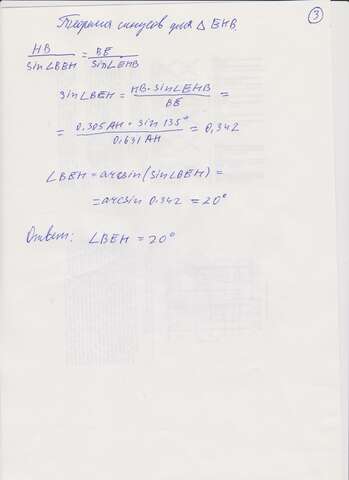 3
Теорема синусов для △ EHB
HB / sin∠BEH = BE / sin∠EHB
sin∠BEH = HB · sin∠EHB / BE =
= 0.305 AH · sin 135° / 0.631 AH = 0,342
∠BEH = arcsin(sin∠BEH) =
= arcsin 0.342 = 20°
Ответ: ∠BEH = 20°